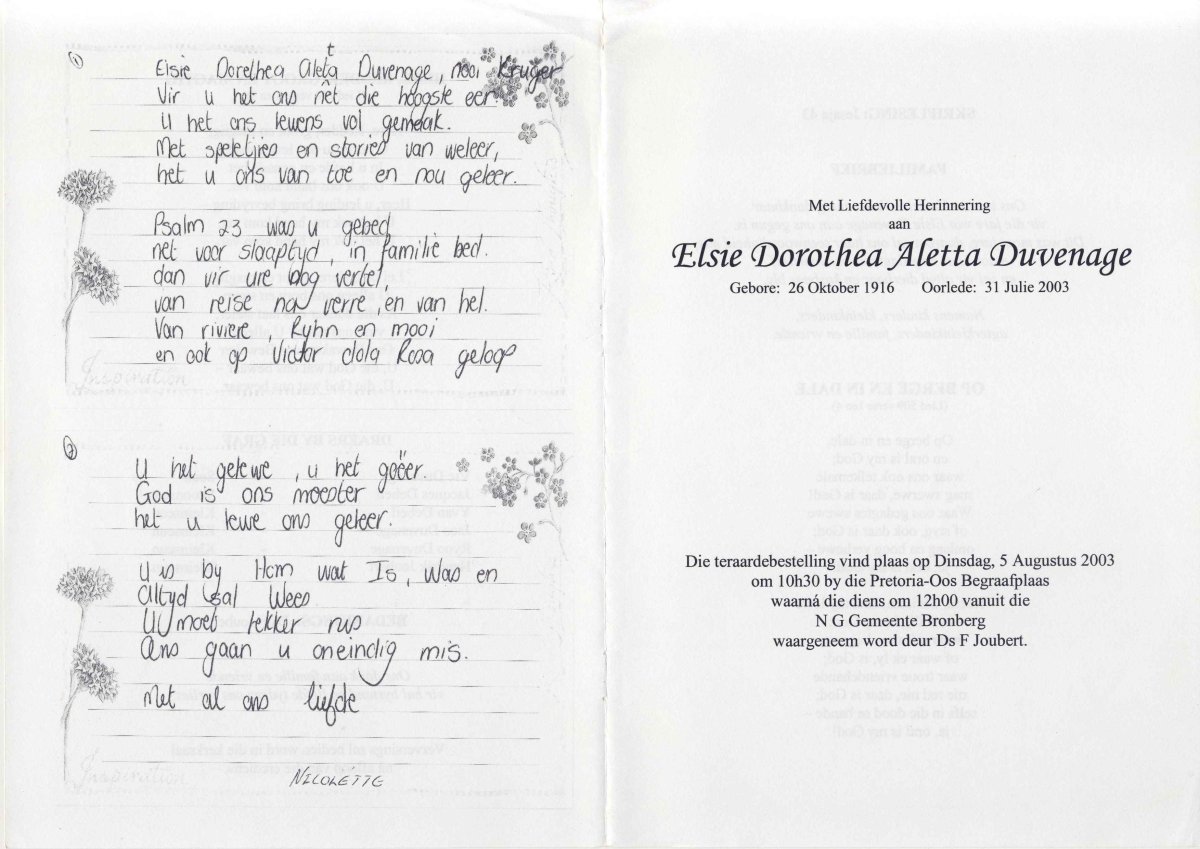 1
t
Elsie Dorethea Aleta Duvenage, nooi Kruger
Vir u het ons nêt die hoogste eer.
U het ons lewens vol gemaak.
Met speletjies en stories van weleer,
het u ons van toe en nou geleer.
Psalm 23 was u gebed
net voor slaaptyd, in familie bed.
dan vir ure nog vertel,
van reise na verre, en van hel.
Van riviere, Ryhn en mooi
en ook op Viator dola Rosa geloop
Inspiration
2
U het gelewe, u het geëer.
God is ons meester
het u lewe ons geleer.
U is by Hom wat Is, Was en
Altyd sal Wees
U moet lekker rus
Ons gaan u oneindig mis.
Met al ons liefde
Inspiration
NICOLETTE
Met Liefdevolle Herinnering
aan
Elsie Dorothea Aletta Duvenage
Gebore: 26 Oktober 1916 Oorlede: 31 Julie 2003
Die teraardebestelling vind plaas op Dinsdag, 5 Augustus 2003
om 10h30 by die Pretoria-Oos Begraafplaas
waarná die diens om 12h00 vanuit die
N G Gemeente Bronberg
waargeneem word deur Ds F Joubert.